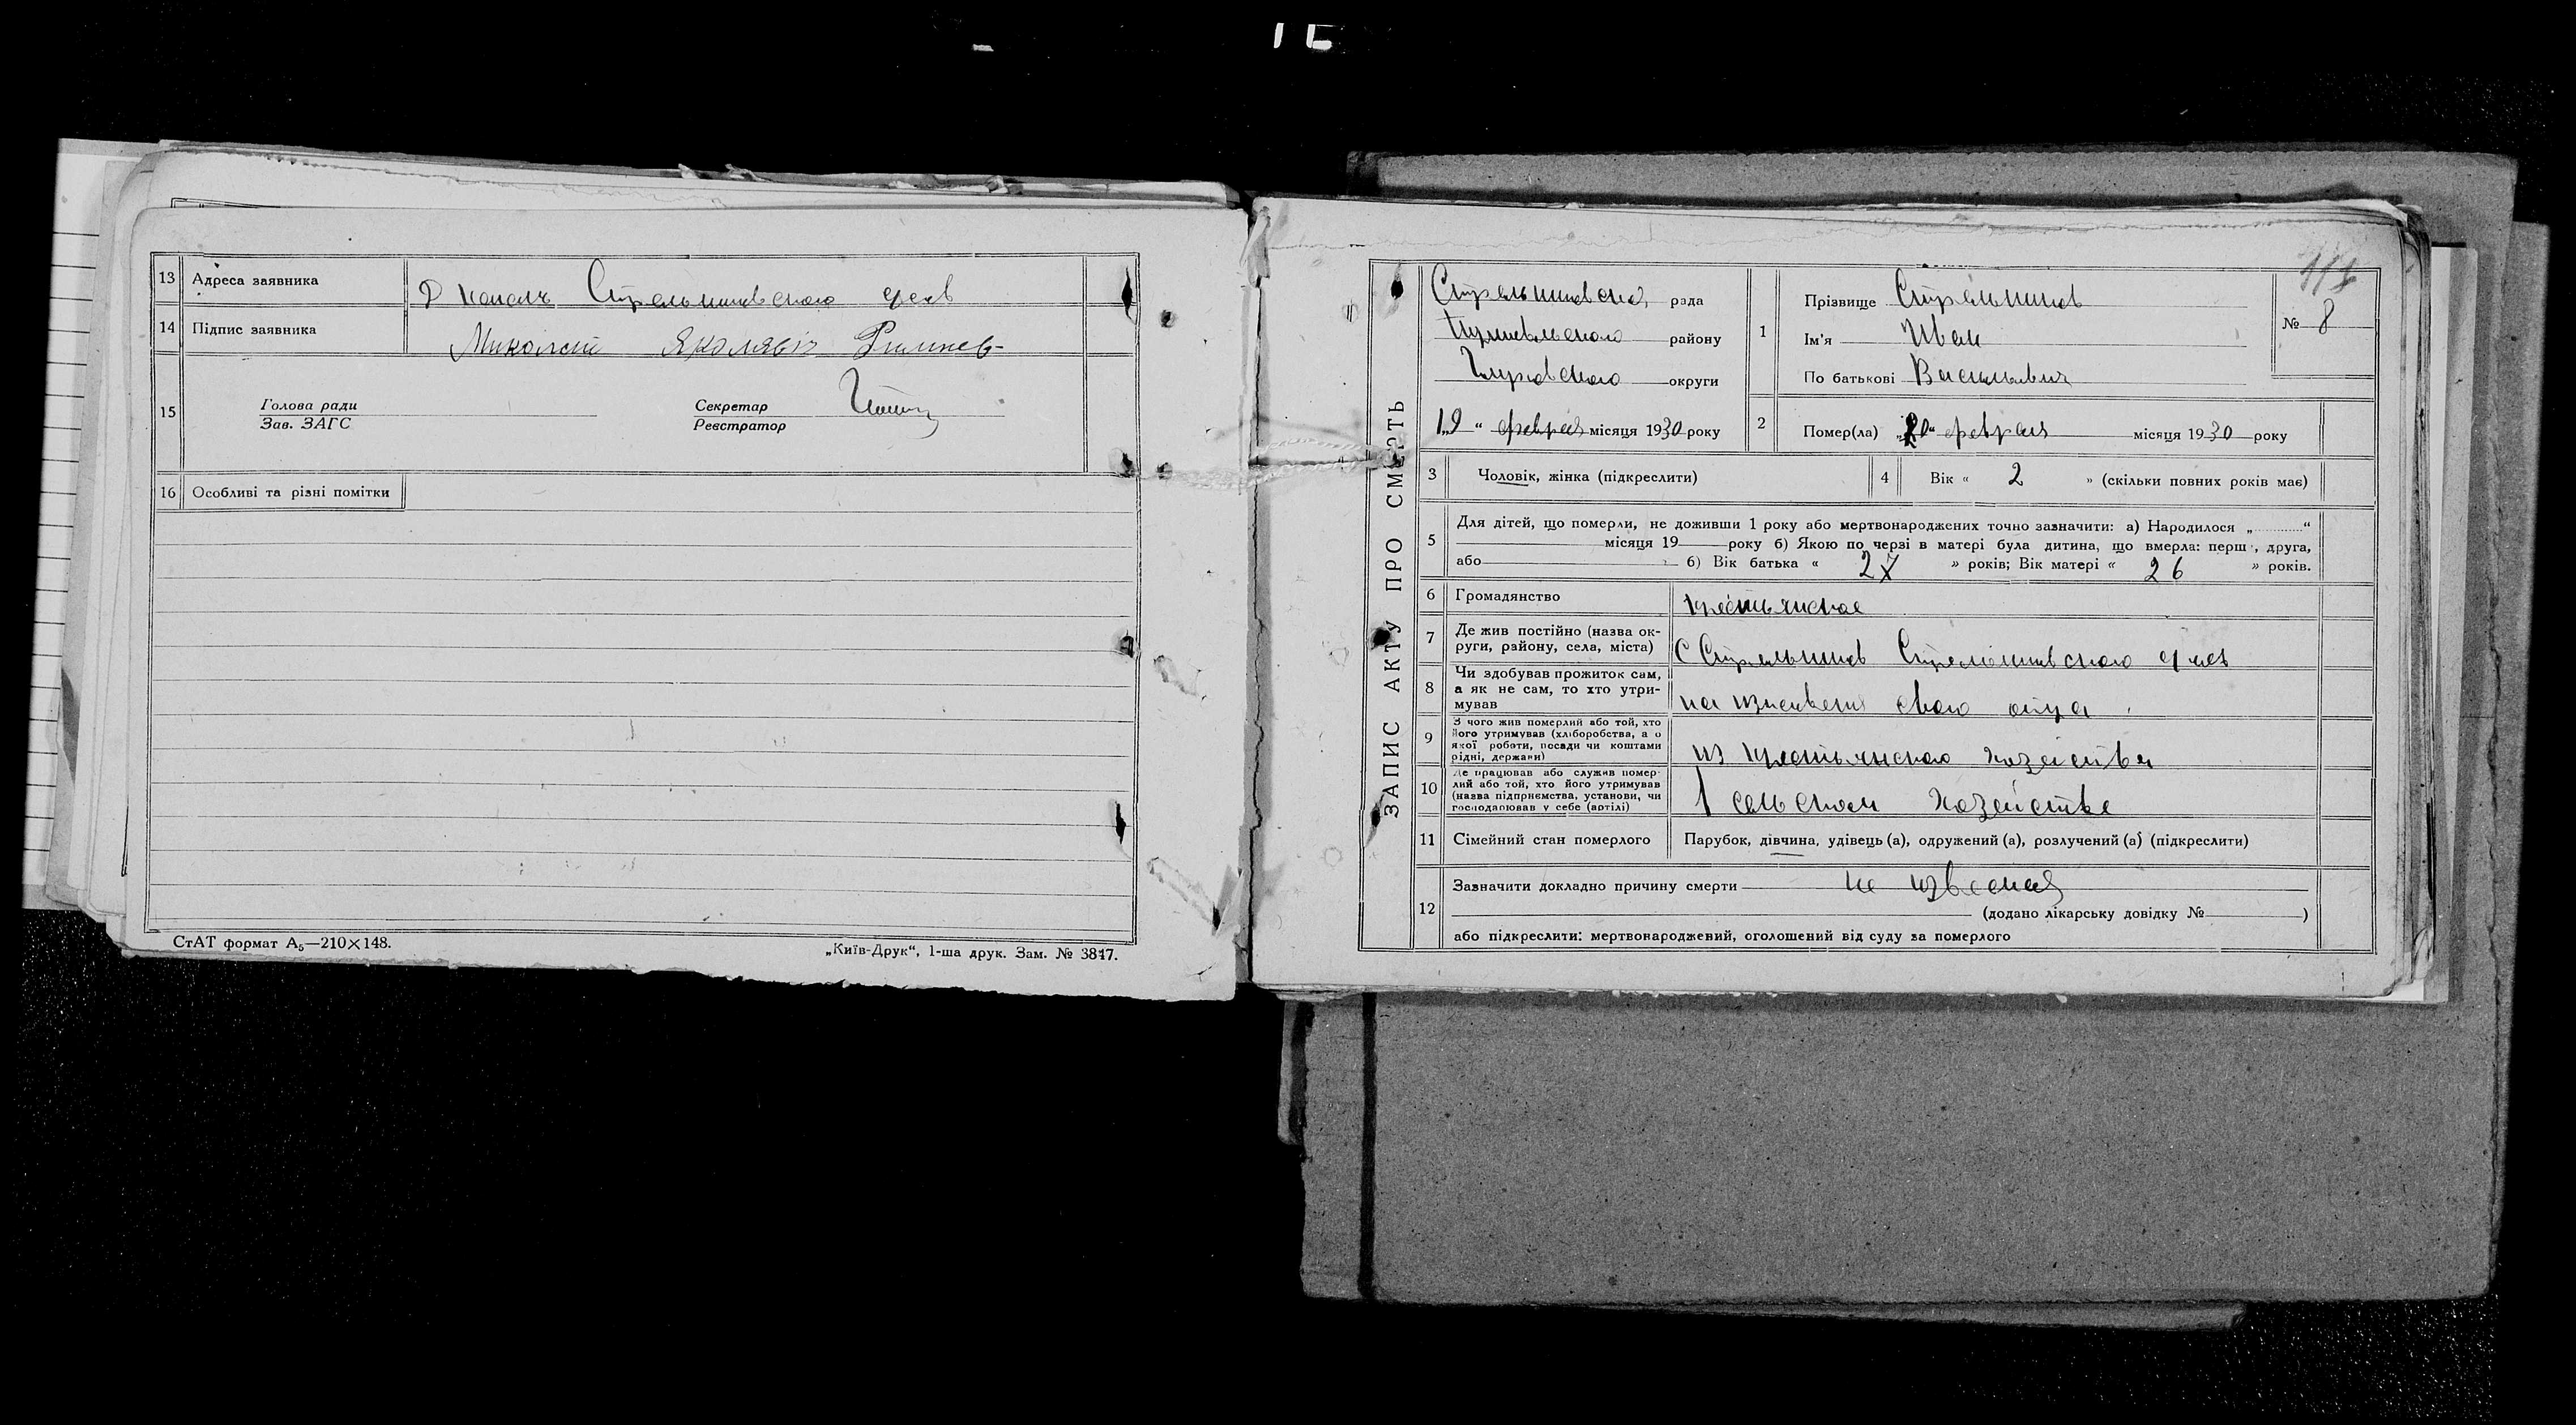 13 Адреса заявника
14 Підпис заявника Миколай Яколявіч
15 Голова ради Секретар
Зав. ЗАГС Реєстратор
16 Особливі та різні помітки
СтАТ формат А5—210×148.
„Київ-Друк“, 1-ша друк. Зам. № 3847.
ЗАПИС АКТУ ПРО СМЕРТЬ
рада
району
округи
1„9“ февраля місяця 1930 року
1 Прізвище Стрельников
Ім'я Иван
По батькові Васильевич
№ 8
2 Помер(ла) „20“ февраля місяця 1930 року
3 Чоловік, жінка (підкреслити)
4 Вік « 2 » (скільки повних років має)
5 Для дітей, що померли, не доживши 1 року або мертвонароджених точно зазначити: а) Народилося „ “
місяця 19 року б) Якою по черзі в матері була дитина, що вмерла: перш , друга,
або б) Вік батька « 27 » років; Вік матері « 26 » років.
6 Громадянство крестьянское
7 Де жив постійно (назва ок-
руги, району, села, міста)
8 Чи здобував прожиток сам,
а як не сам, то хто утри-
мував
на иждевения своего отца
9 З чого жив померлий або той, хто
його утримував (хліборобства, а о
якої роботи, посади чи коштами
рідні, держави)
из крестьянского хозейства
10 Де працював або служив помер-
лий або той, хто його утримував
(назва підприємства, установи, чи
господарював у себе (артілі)
в сельском хозействе
11 Сімейний стан померлого Парубок, дівчина, удівець (а), одружений (а), розлучений (а) (підкреслити)
12 Зазначити докладно причину смерти не
(додано лікарську довідку № )
або підкреслити: мертвонароджений, оголошений від суду за померлого